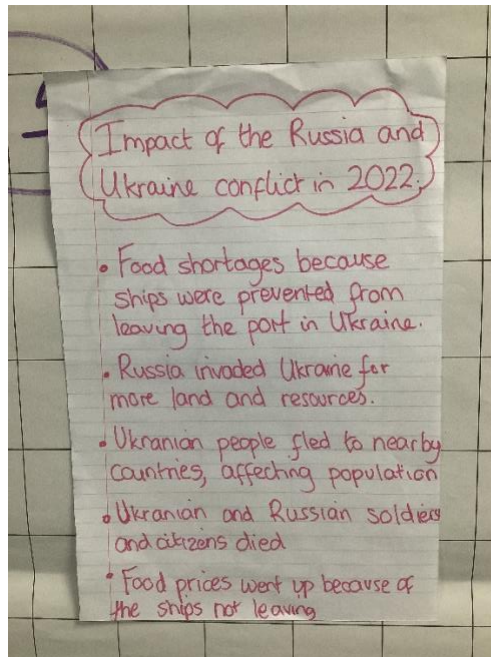 Impact of the Russia and
Ukraine conflict in 2022.
• Food shortages because
ships were prevented from
leaving the port in Ukraine.
• Russia invaded Ukraine for
more land and resources.
• Ukranian people fled to nearby
countries, affecting population
• Ukranian and Russian soldiers
and citizens died
• Food prices went up because of
the ships not leaving